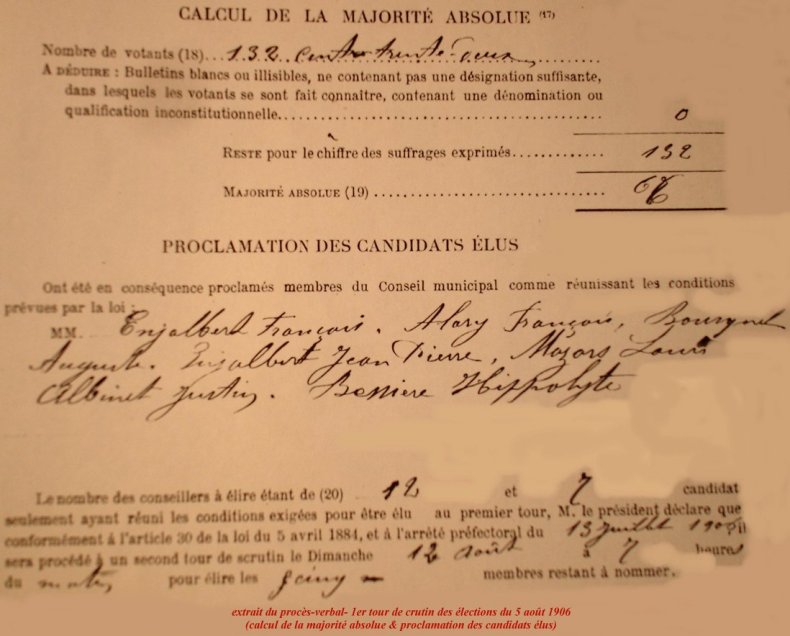 CALCUL DE LA MAJORITÉ ABSOLUE (17)
Nombre de votants (18)... 132 cent trente-deux
A DÉDUIRE : Bulletins blancs ou illisibles, ne contenant pas une désignation suffisante,
dans lesquels les votants se sont fait connaître, contenant une dénomination ou
qualification inconstitutionnelle........ 0
RESTE pour le chiffre des suffrages exprimés........ 132
MAJORITÉ ABSOLUE (19) ........
PROCLAMATION DES CANDIDATS ÉLUS
Ont été en conséquence proclamés membres du Conseil municipal comme réunissant les conditions
prévues par la loi :
MM. Enjalbert François. Alary François, Bousquet
Auguste. Enjalbert Jean Pierre, Mazars Louis
Albinet Justin. Bessiere Hippolyte
Le nombre des conseillers à élire étant de (20) 12 et 7 candidat
seulement ayant réuni les conditions exigées pour être élu au premier tour, M. le président déclare que
conformément à l'article 30 de la loi du 5 avril 1884, et à l'arrêté préfectoral du 13 juillet 1906 il
sera procédé à un second tour de scrutin le Dimanche 12 août à 7 heures
du matin pour élire les cinq membres restant à nommer.
extrait du procès-verbal- 1er tour de crutin des élections du 5 août 1906
(calcul de la majorité absolue & proclamation des candidats élus)